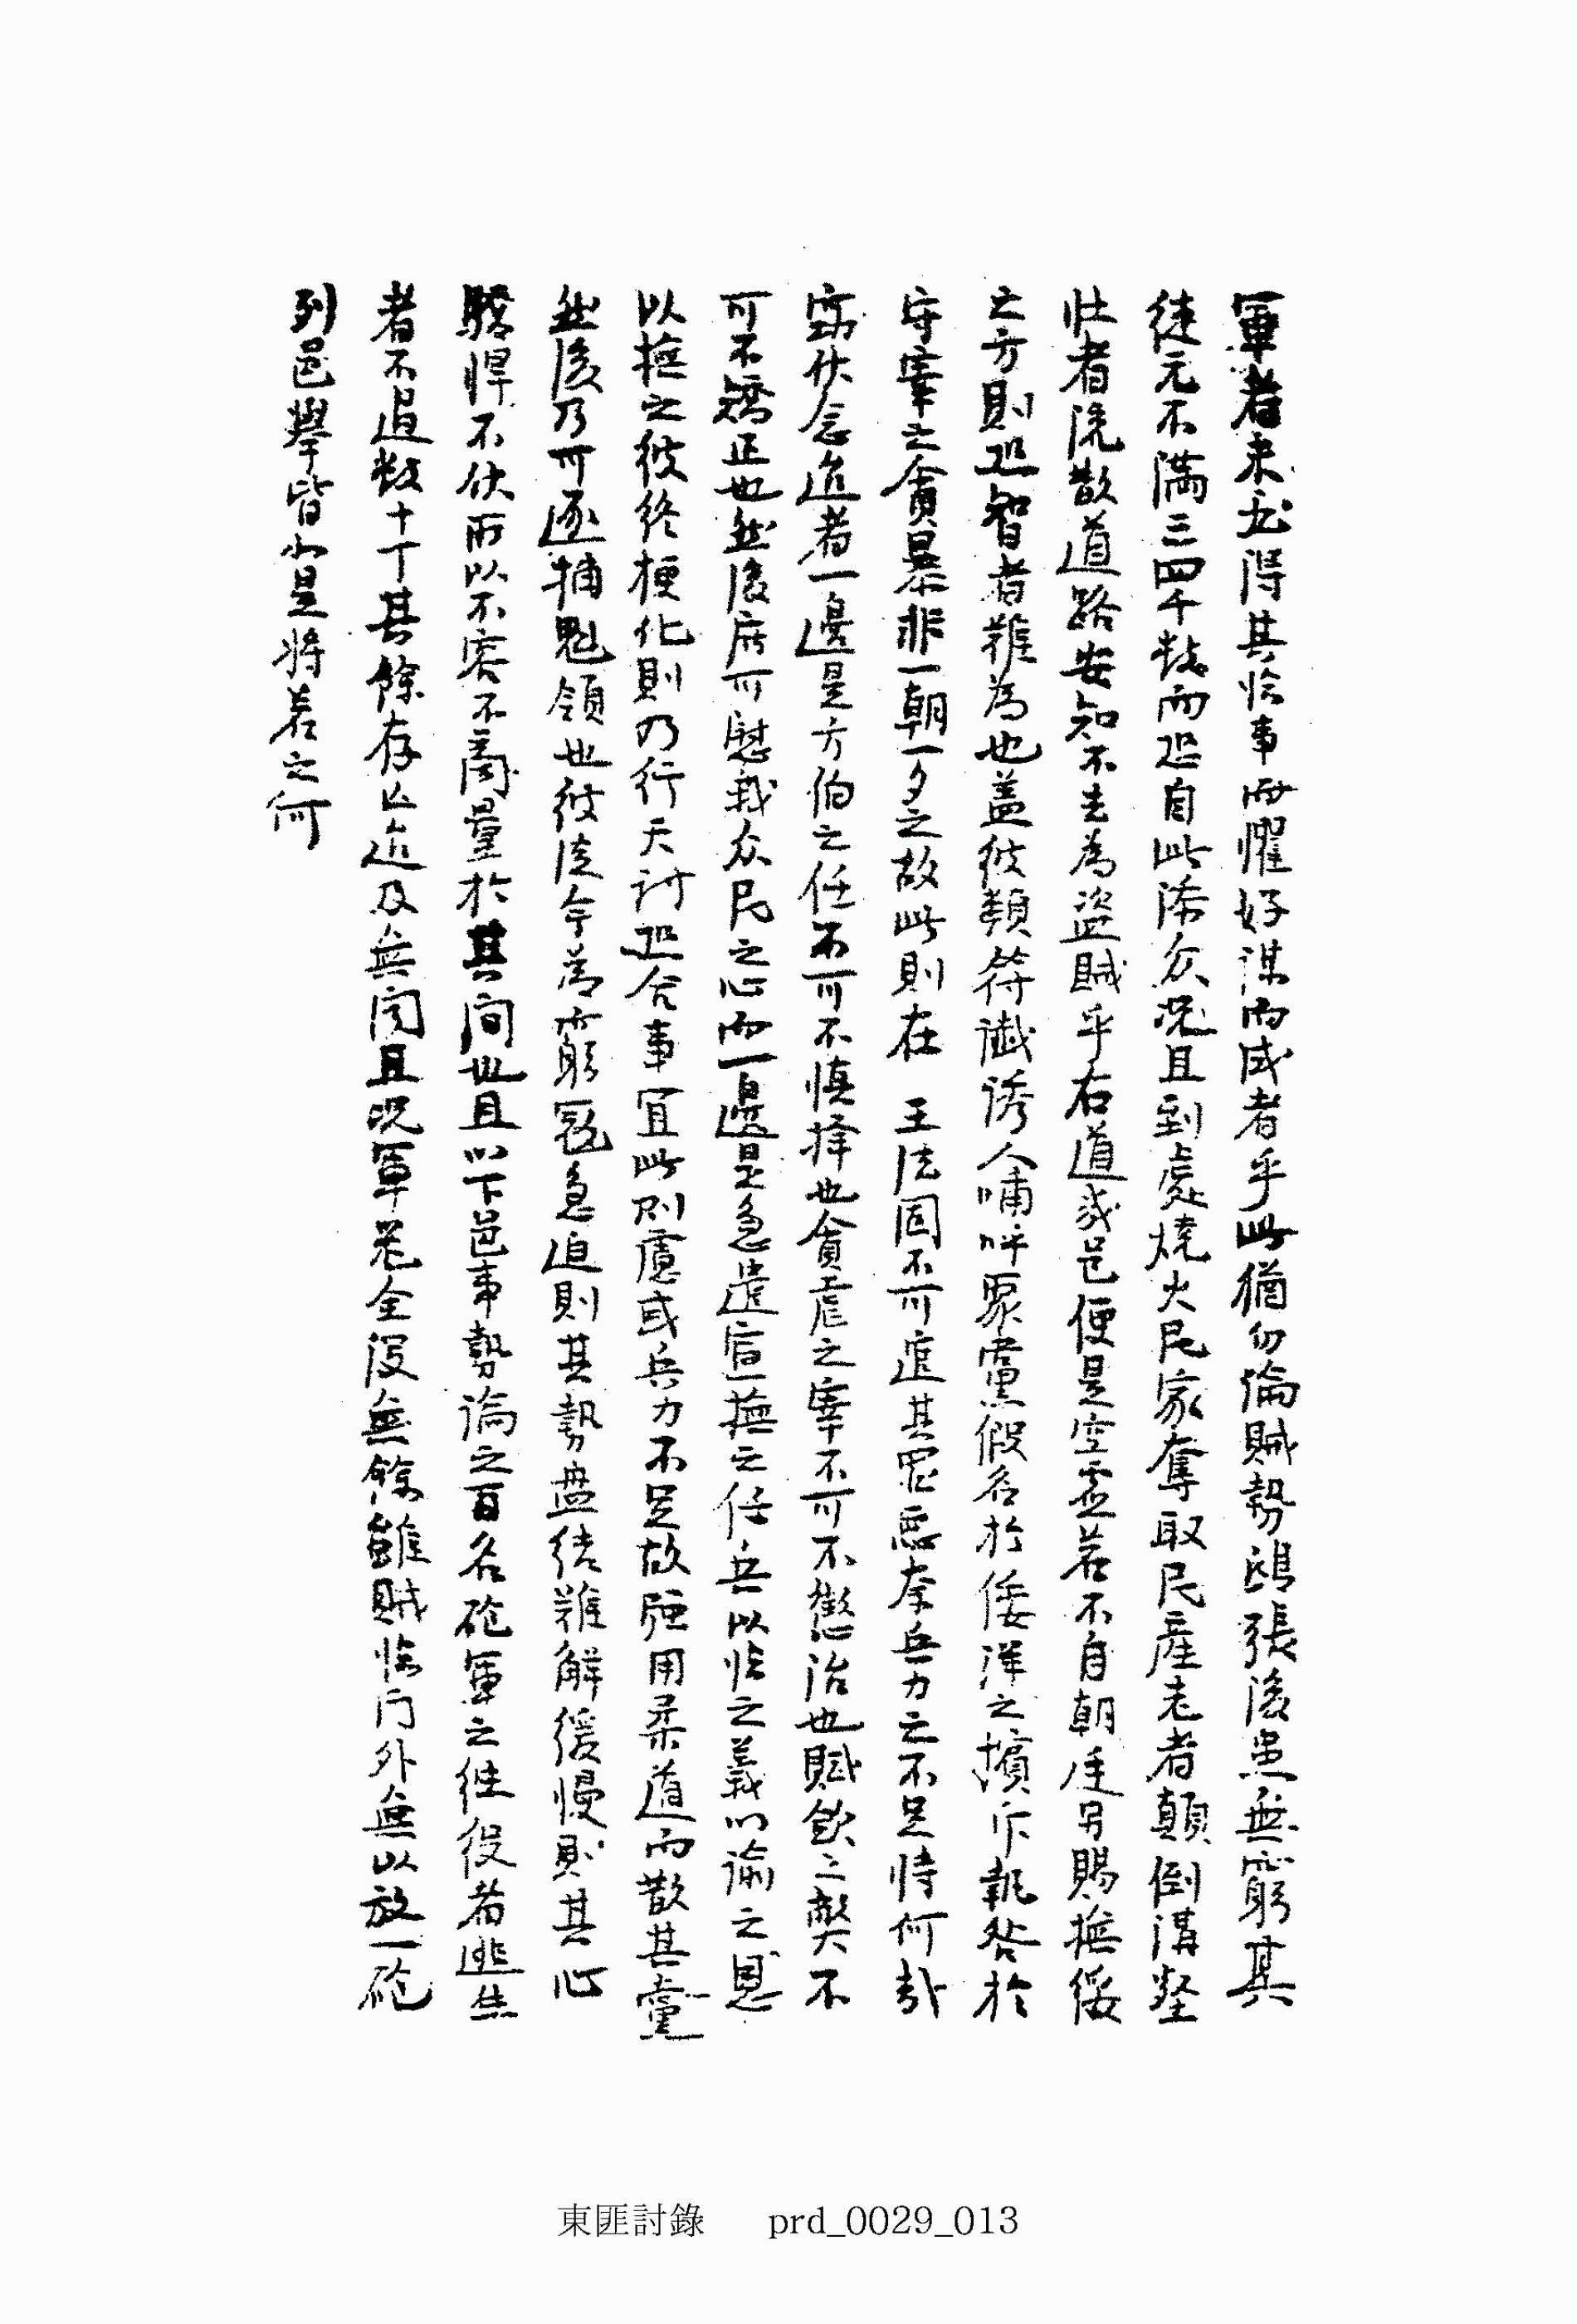 軍者未必得其臨事而懼好謀而成者乎此猶勿論賊勢鴟張後患無窮其
徒元不滿三四千數而恐自此添众况且到處燒火民家奪取民産老者顚倒溝壑
壯者流散道路安知不去爲盜賊乎右道或邑便是空虛若不自朝廷另賜撫綏
之方則恐智者難爲也盖彼類符讖誘人嘯呼聚黨假名於倭洋之擯斥執咎於
守宰之貪暴非一朝一夕之故此則在　王法固不可逭其罪惡奈兵力之不足恃何哉
窃伏念近者一邊是方伯之任不可不愼擇也貪虐之宰不可不懲治也賦斂之獘不
可不矯正也然後庶可慰我众民之心而一邊是急遣宣撫之任兵以臨之義以諭之恩
以撫之彼終梗化則乃行天討恐合事宜此則慮或兵力不足故區用柔道而散其黨
然後乃可逐捕魁領也彼徒今爲窮寇急迫則其勢盘結難解緩慢則其心
驕悍不伏所以不容不商量於其間也且以下邑事勢論之百名砲軍之徃役者逃生
者不過數十丁其餘存亡迄及無聞且况軍器全沒無餘雖賊臨門外無以放一砲
列邑擧皆如是將若之何
東匪討錄　prd_0029_013